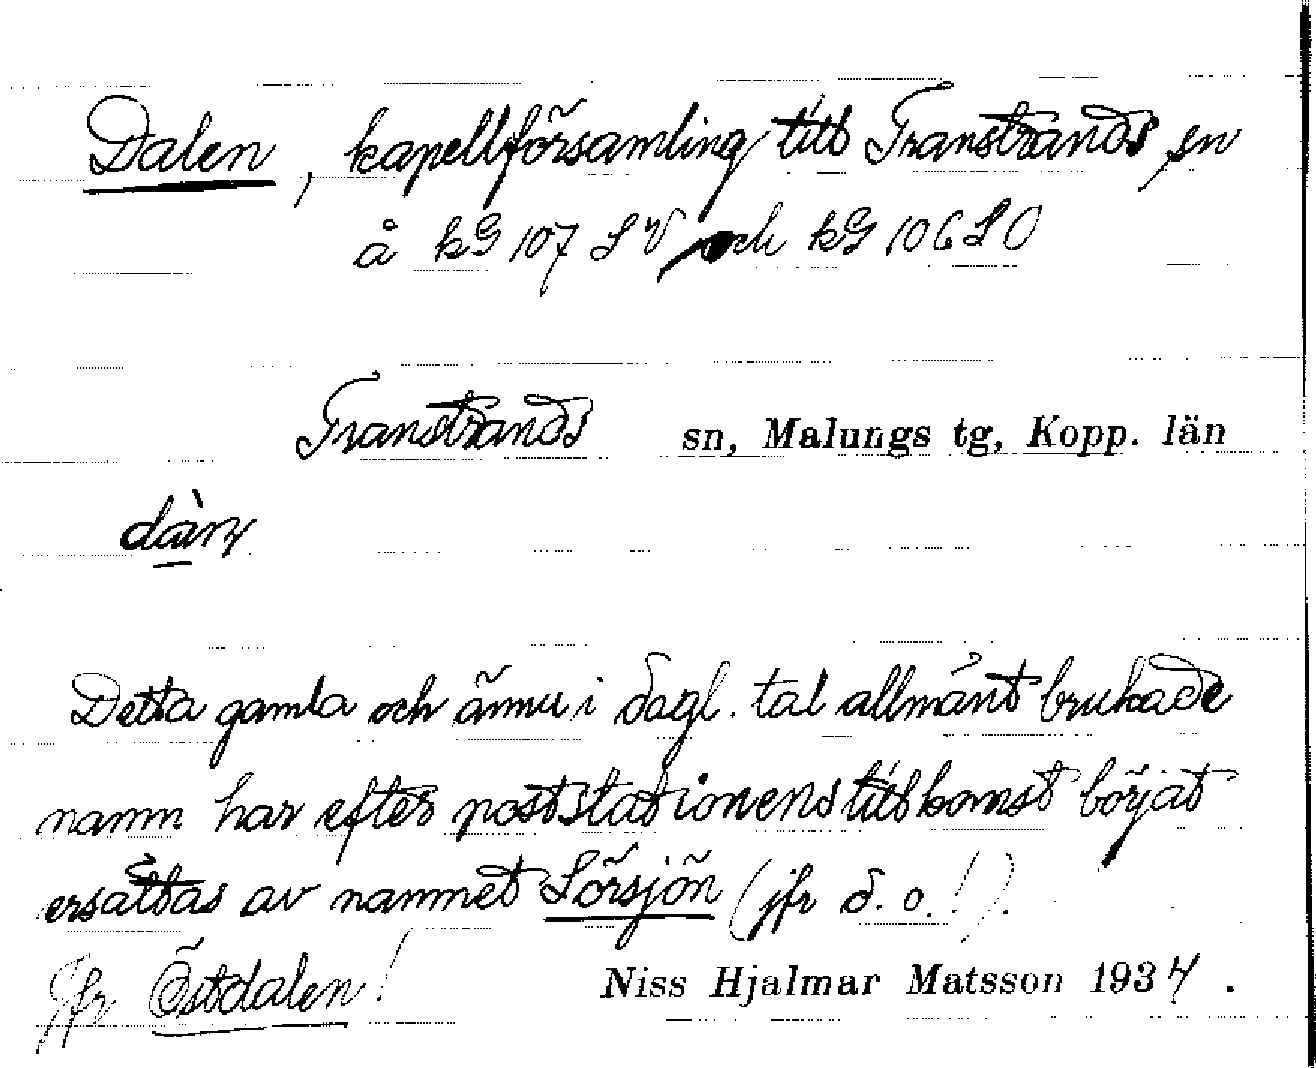 Dalen, kapellförsamling till Transtrands sn
å kG 107 SV och kG 106 SO
Transtrands sn, Malungs tg, Kopp. län
Detta gamla och ännu i dagl. tal allmänt brukade
namn har efter poststationens tillkomst börjat
ersättas av namnet Sörsjön (jfr d. o.!).
Jfr Östdalen!
Niss Hjalmar Matsson 1934.